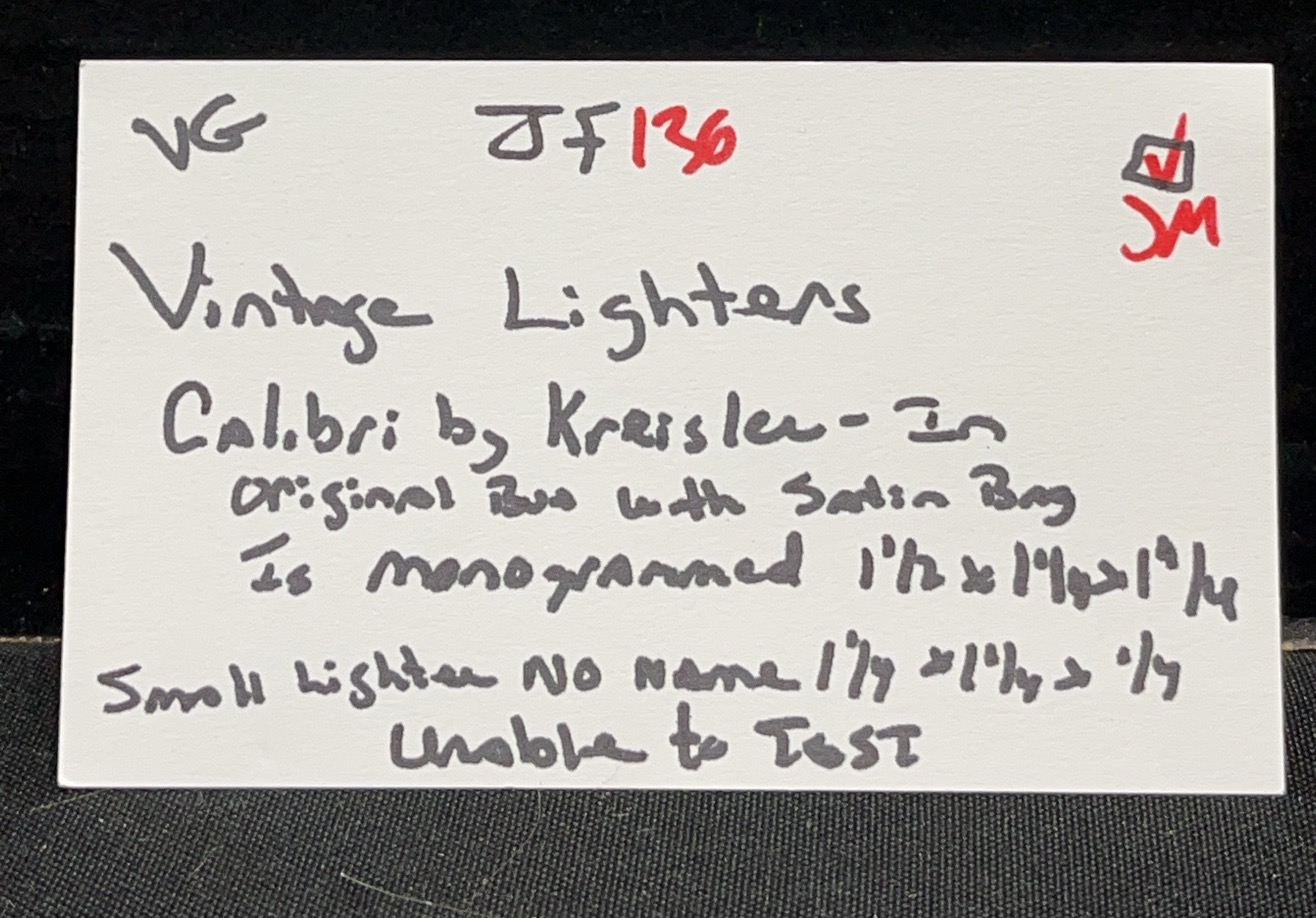 VG JF136
JM
Vintage Lighters
Calibri by Kreisler - In
original Box with Satin Bag
Is monogrammed 1 1/2 x 1 1/4 x 1 1/4
Small Lighter No Name 1 1/4 x 1 1/4 x 1/4
Unable to Test